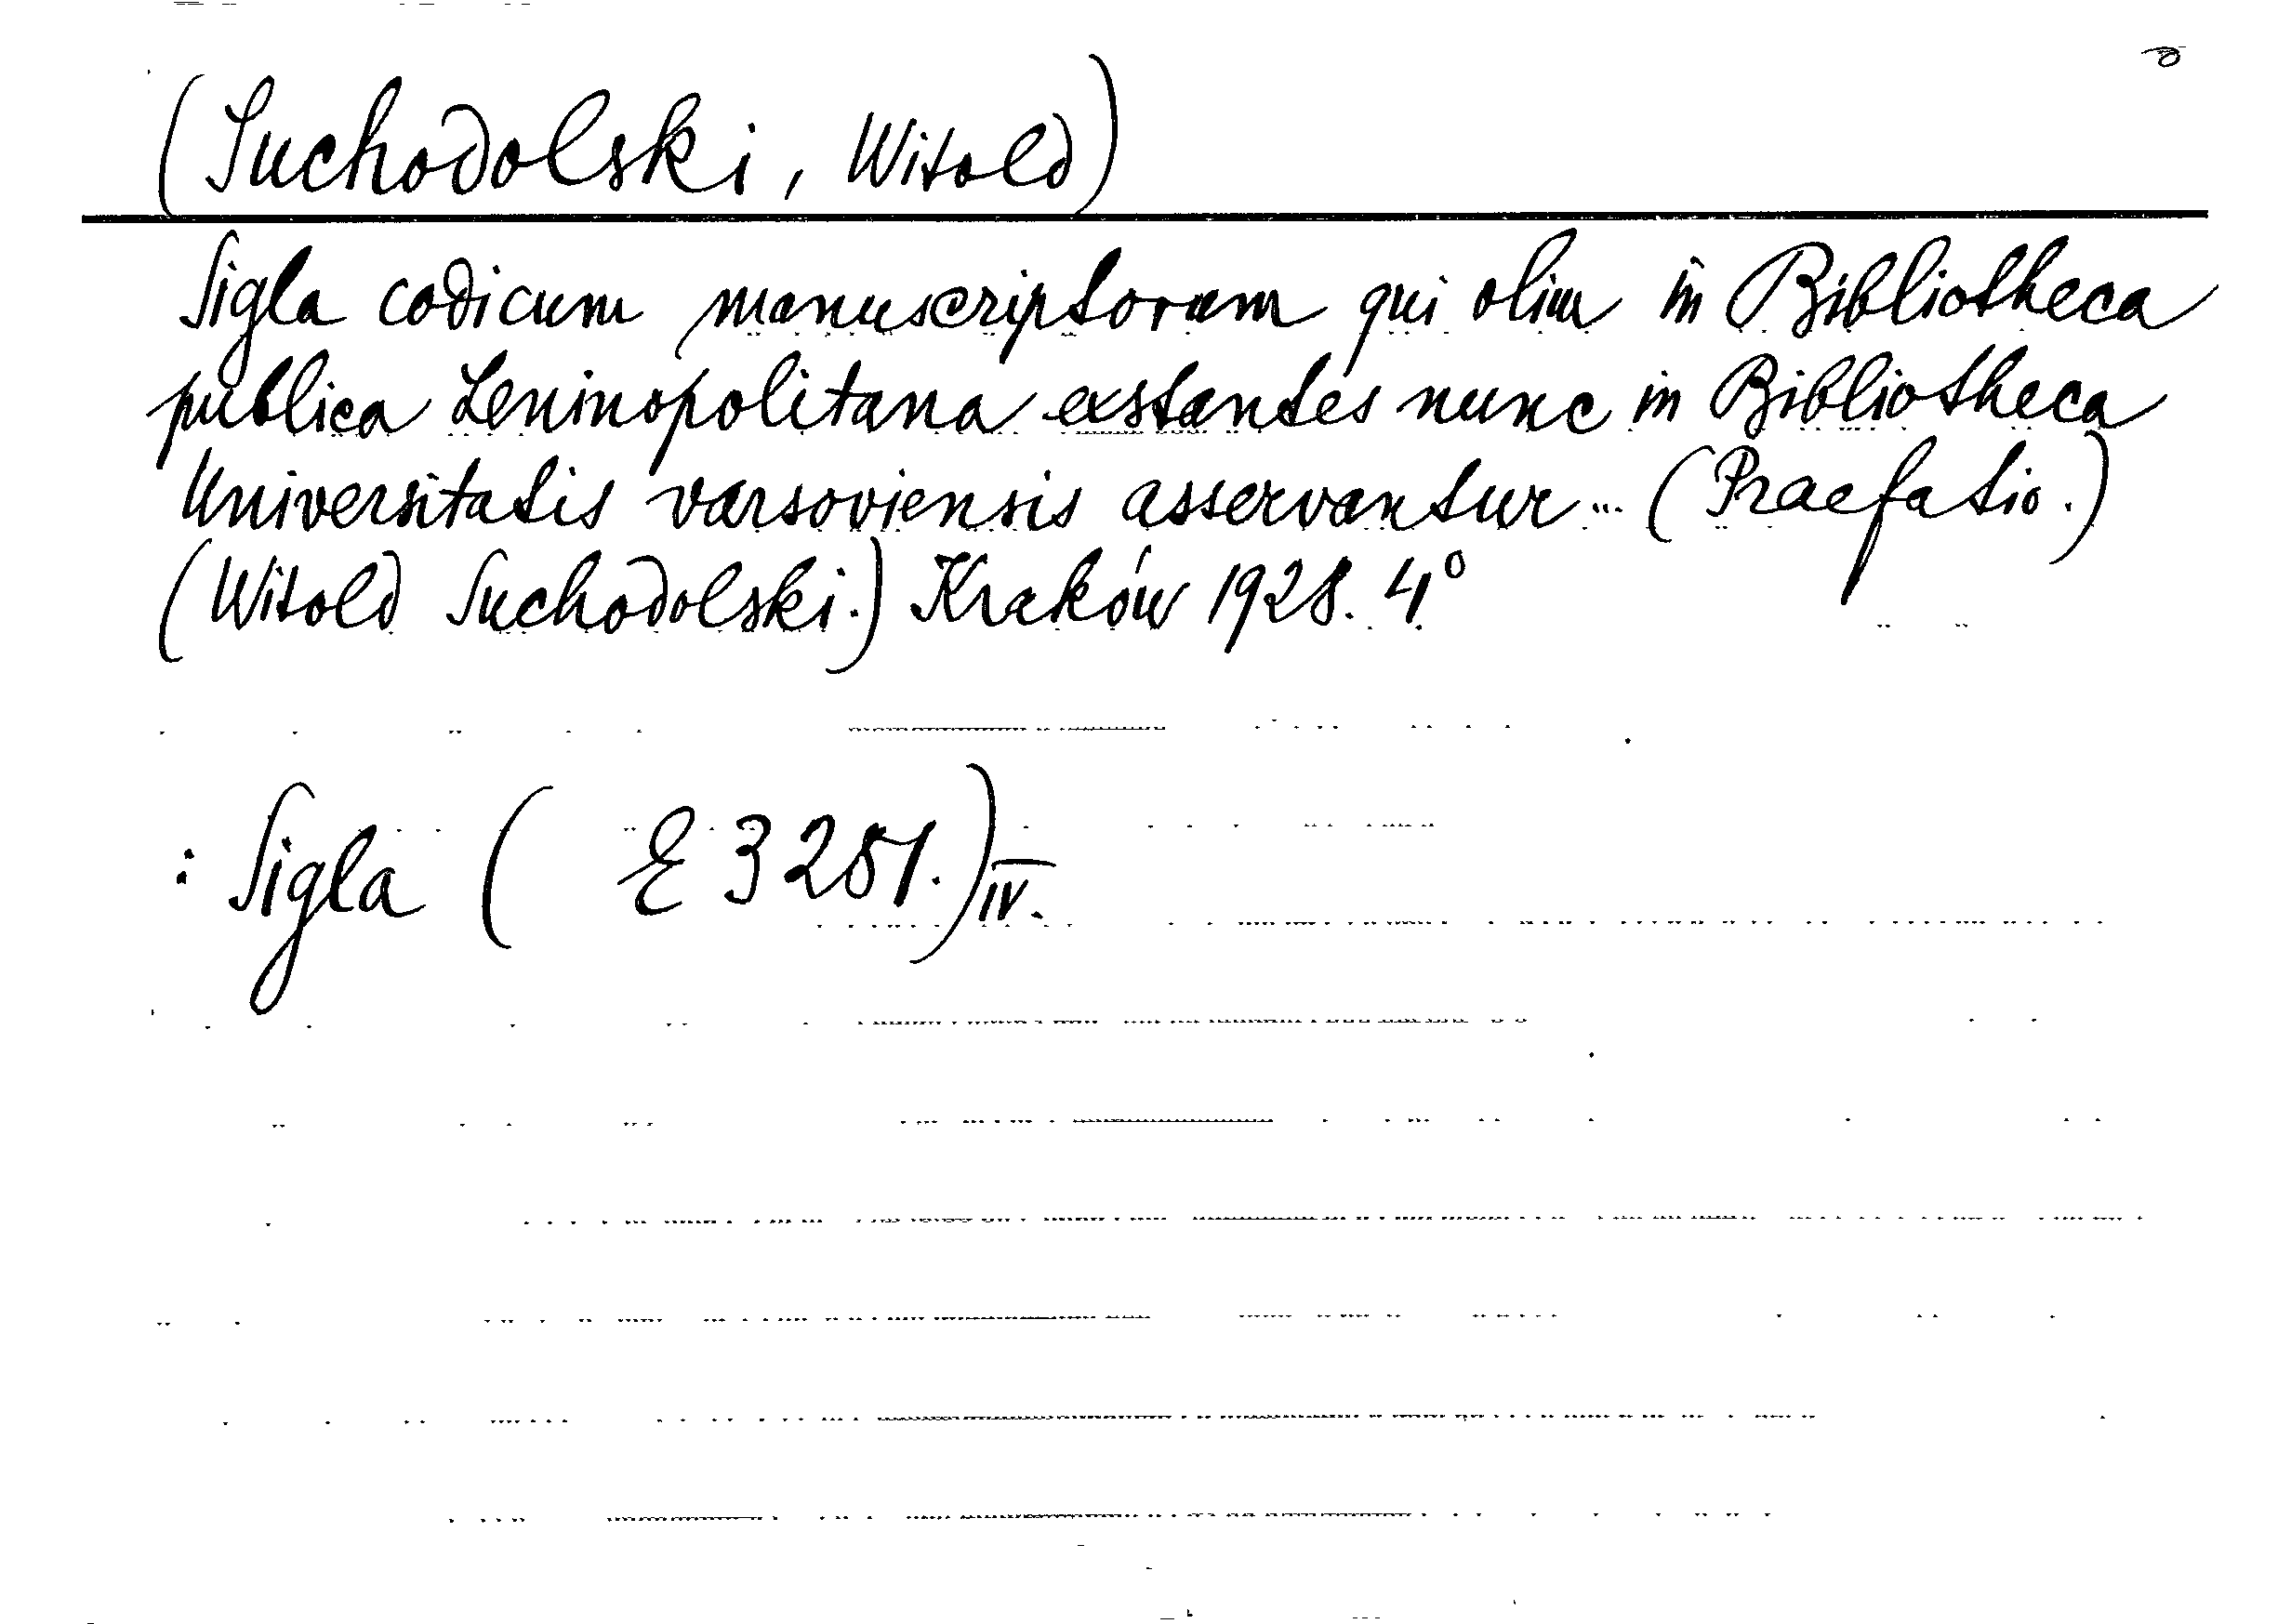 (Suchodolski, Witold)
Sigla codicum manuscriptorum qui olim in Bibliotheca
publica Leninopolitana exstantes nunc in Bibliotheca
Universitatis varsoviensis asservantur... (Praefatio.)
(Witold Suchodolski.) Kraków 1928. 4°
: Sigla ( E 3251.) IV.